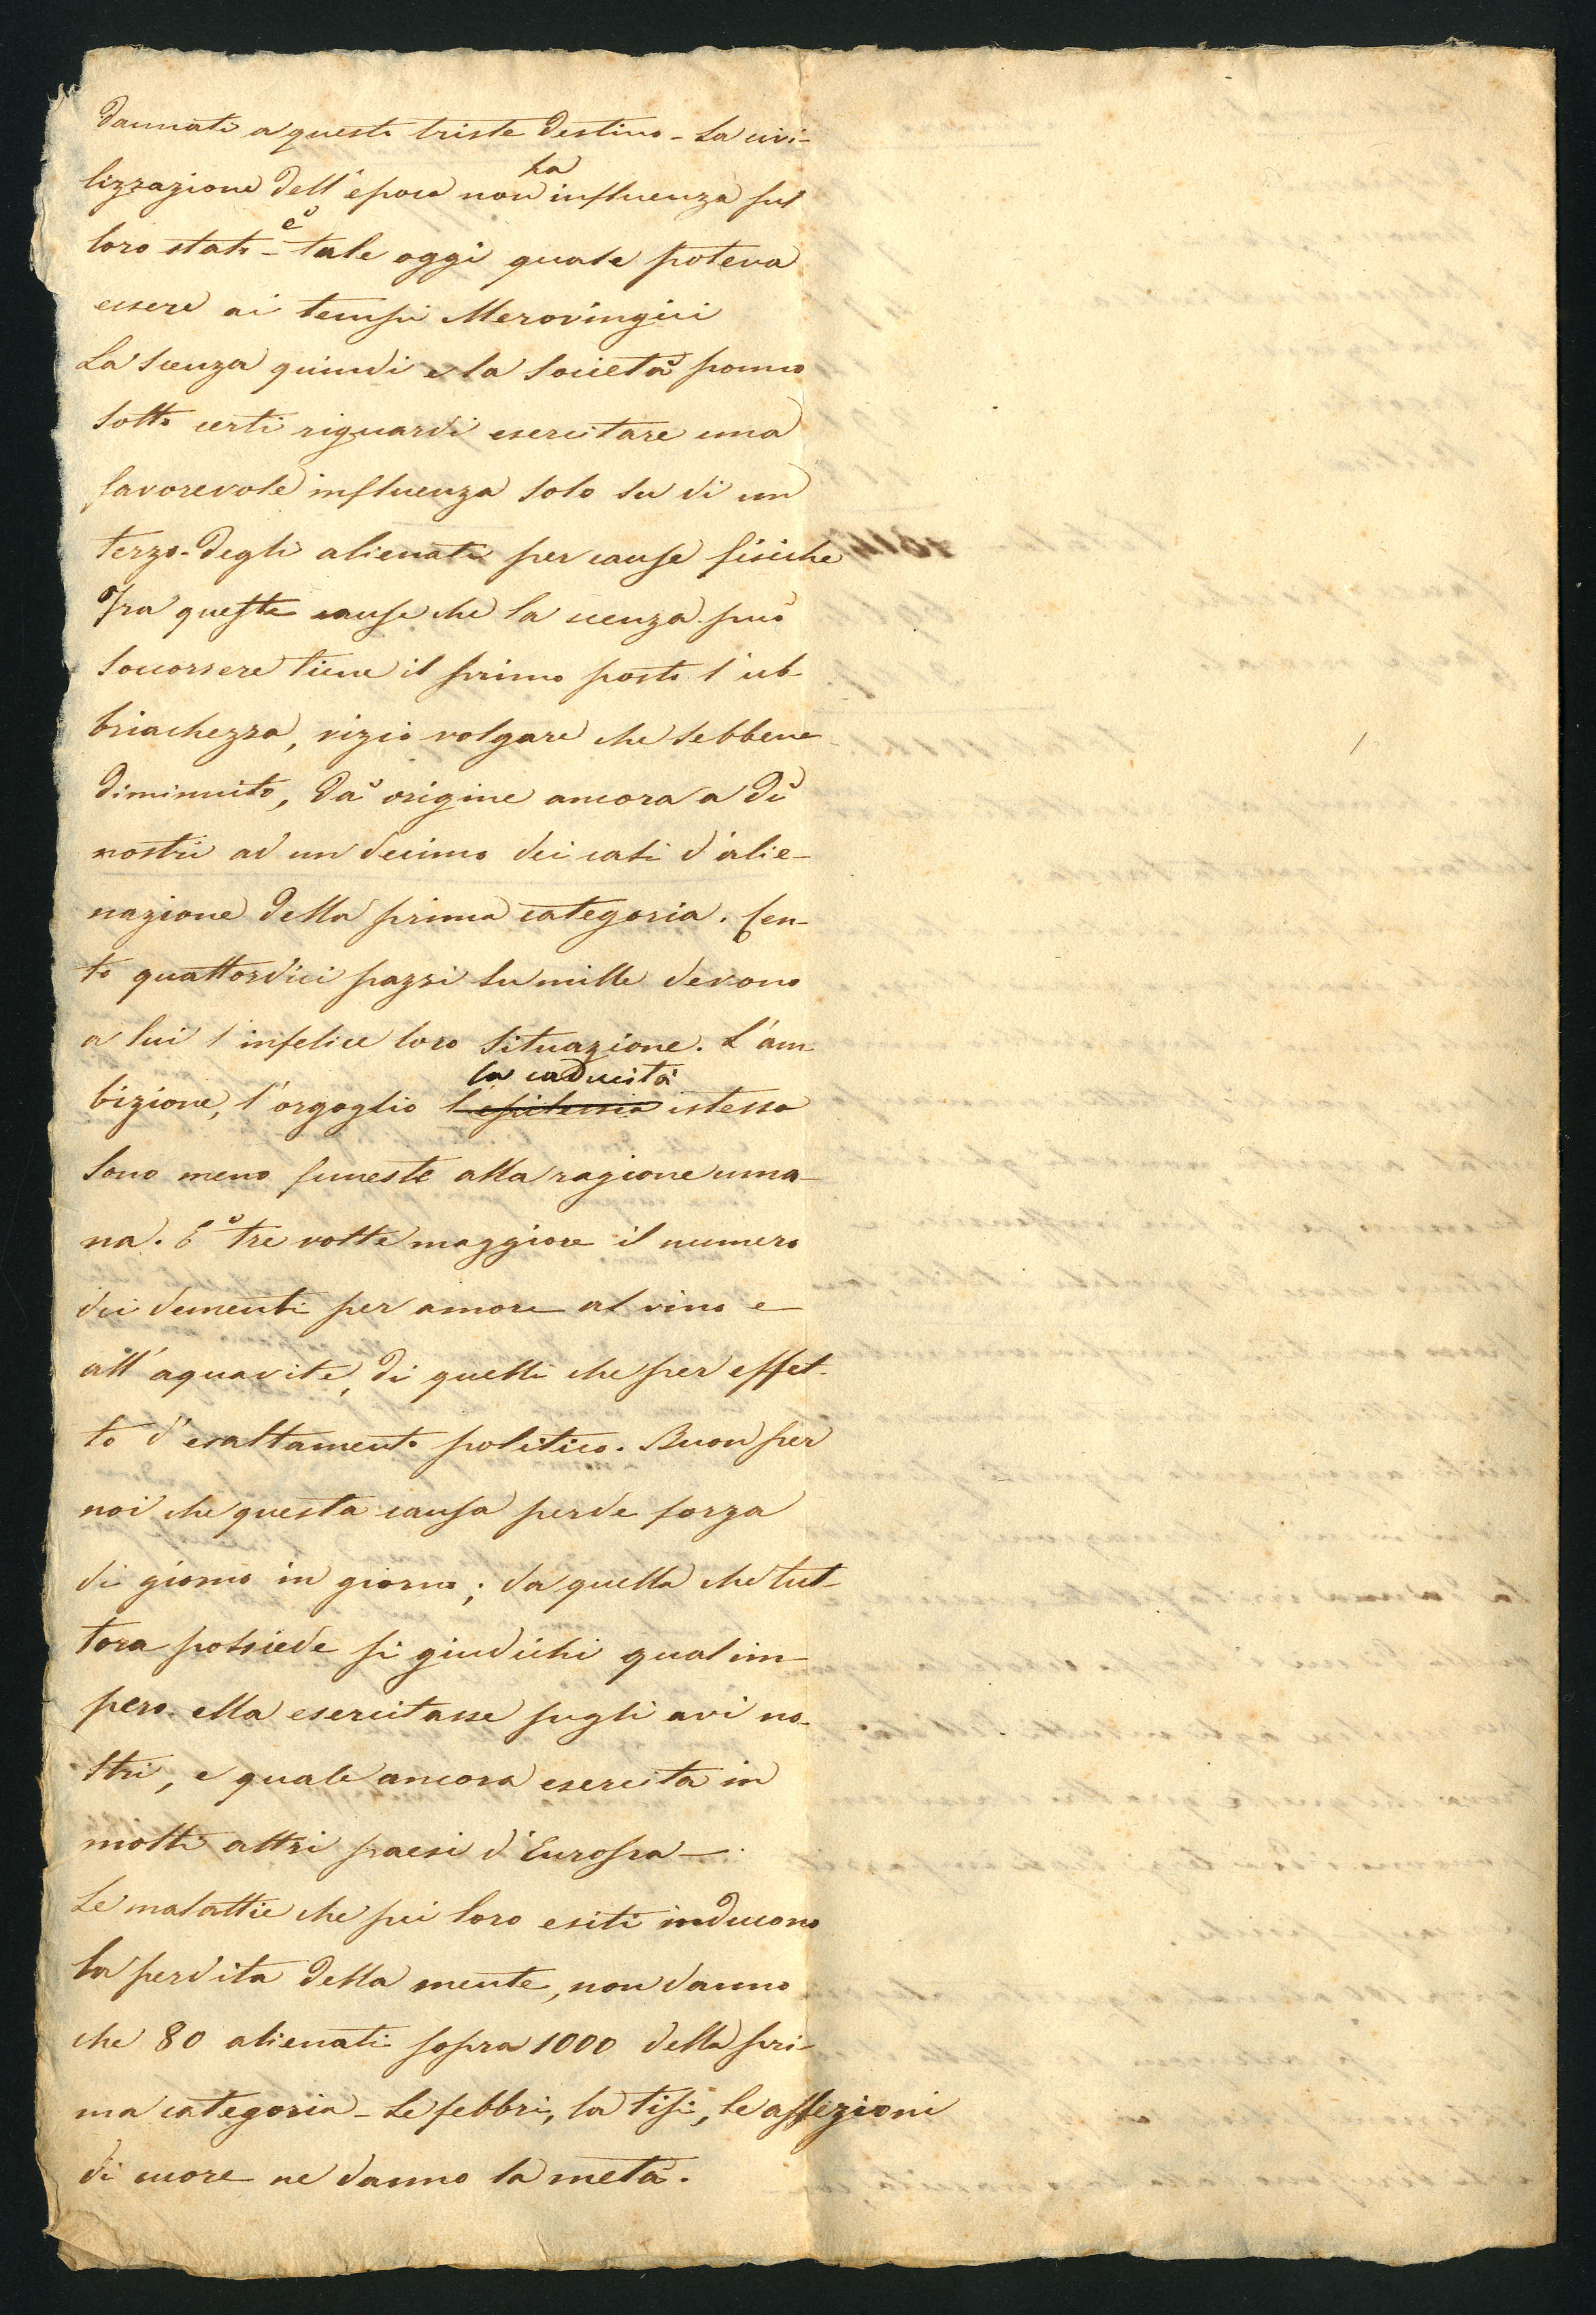 dannati a questo triste destino - La civi-
lizzazione dell'epoca non ha influenza sul
loro stato - è tale oggi quale poteva
essere ai tempi Merovingici
La scenza quindi e la Società ponno
sotto certi riguardi esercitare una
favorevole influenza solo su di un
terzo degli alienati per cause fisiche
Tra queste cause che la scenza può
soccorrere tiene il primo posto l'ub-
briachezza, vizio volgare che sebbene
diminuito, dà origine ancora a dì
nostri ad un decimo dei casi d'alie-
nazione della prima categoria. Cen-
to quattordici pazzi su mille devono
a lui l'infelice loro situazione. L'am-
bizione, l'orgoglio l'epilessia la caducità istessa
sono meno funeste alla ragione uma-
na. È tre volte maggiore il numero
dei dementi per amore al vino e
all'aquavite, di quelli che per effet-
to d'esaltamento politico. Buon per
noi che questa causa perde forza
di giorno in giorno; da quella che tut-
tora possiede si giudichi qual im-
pero ella esercitasse sugli avi no-
stri, e quale ancora esercita in
molti altri paesi d'Europa -
Le malattie che pei loro esiti inducono
la perdita della mente, non danno
che 80 alienati sopra 1000 della pri-
ma categoria - Le febbri, la tisi, le affezioni
di cuore ne danno la metà.